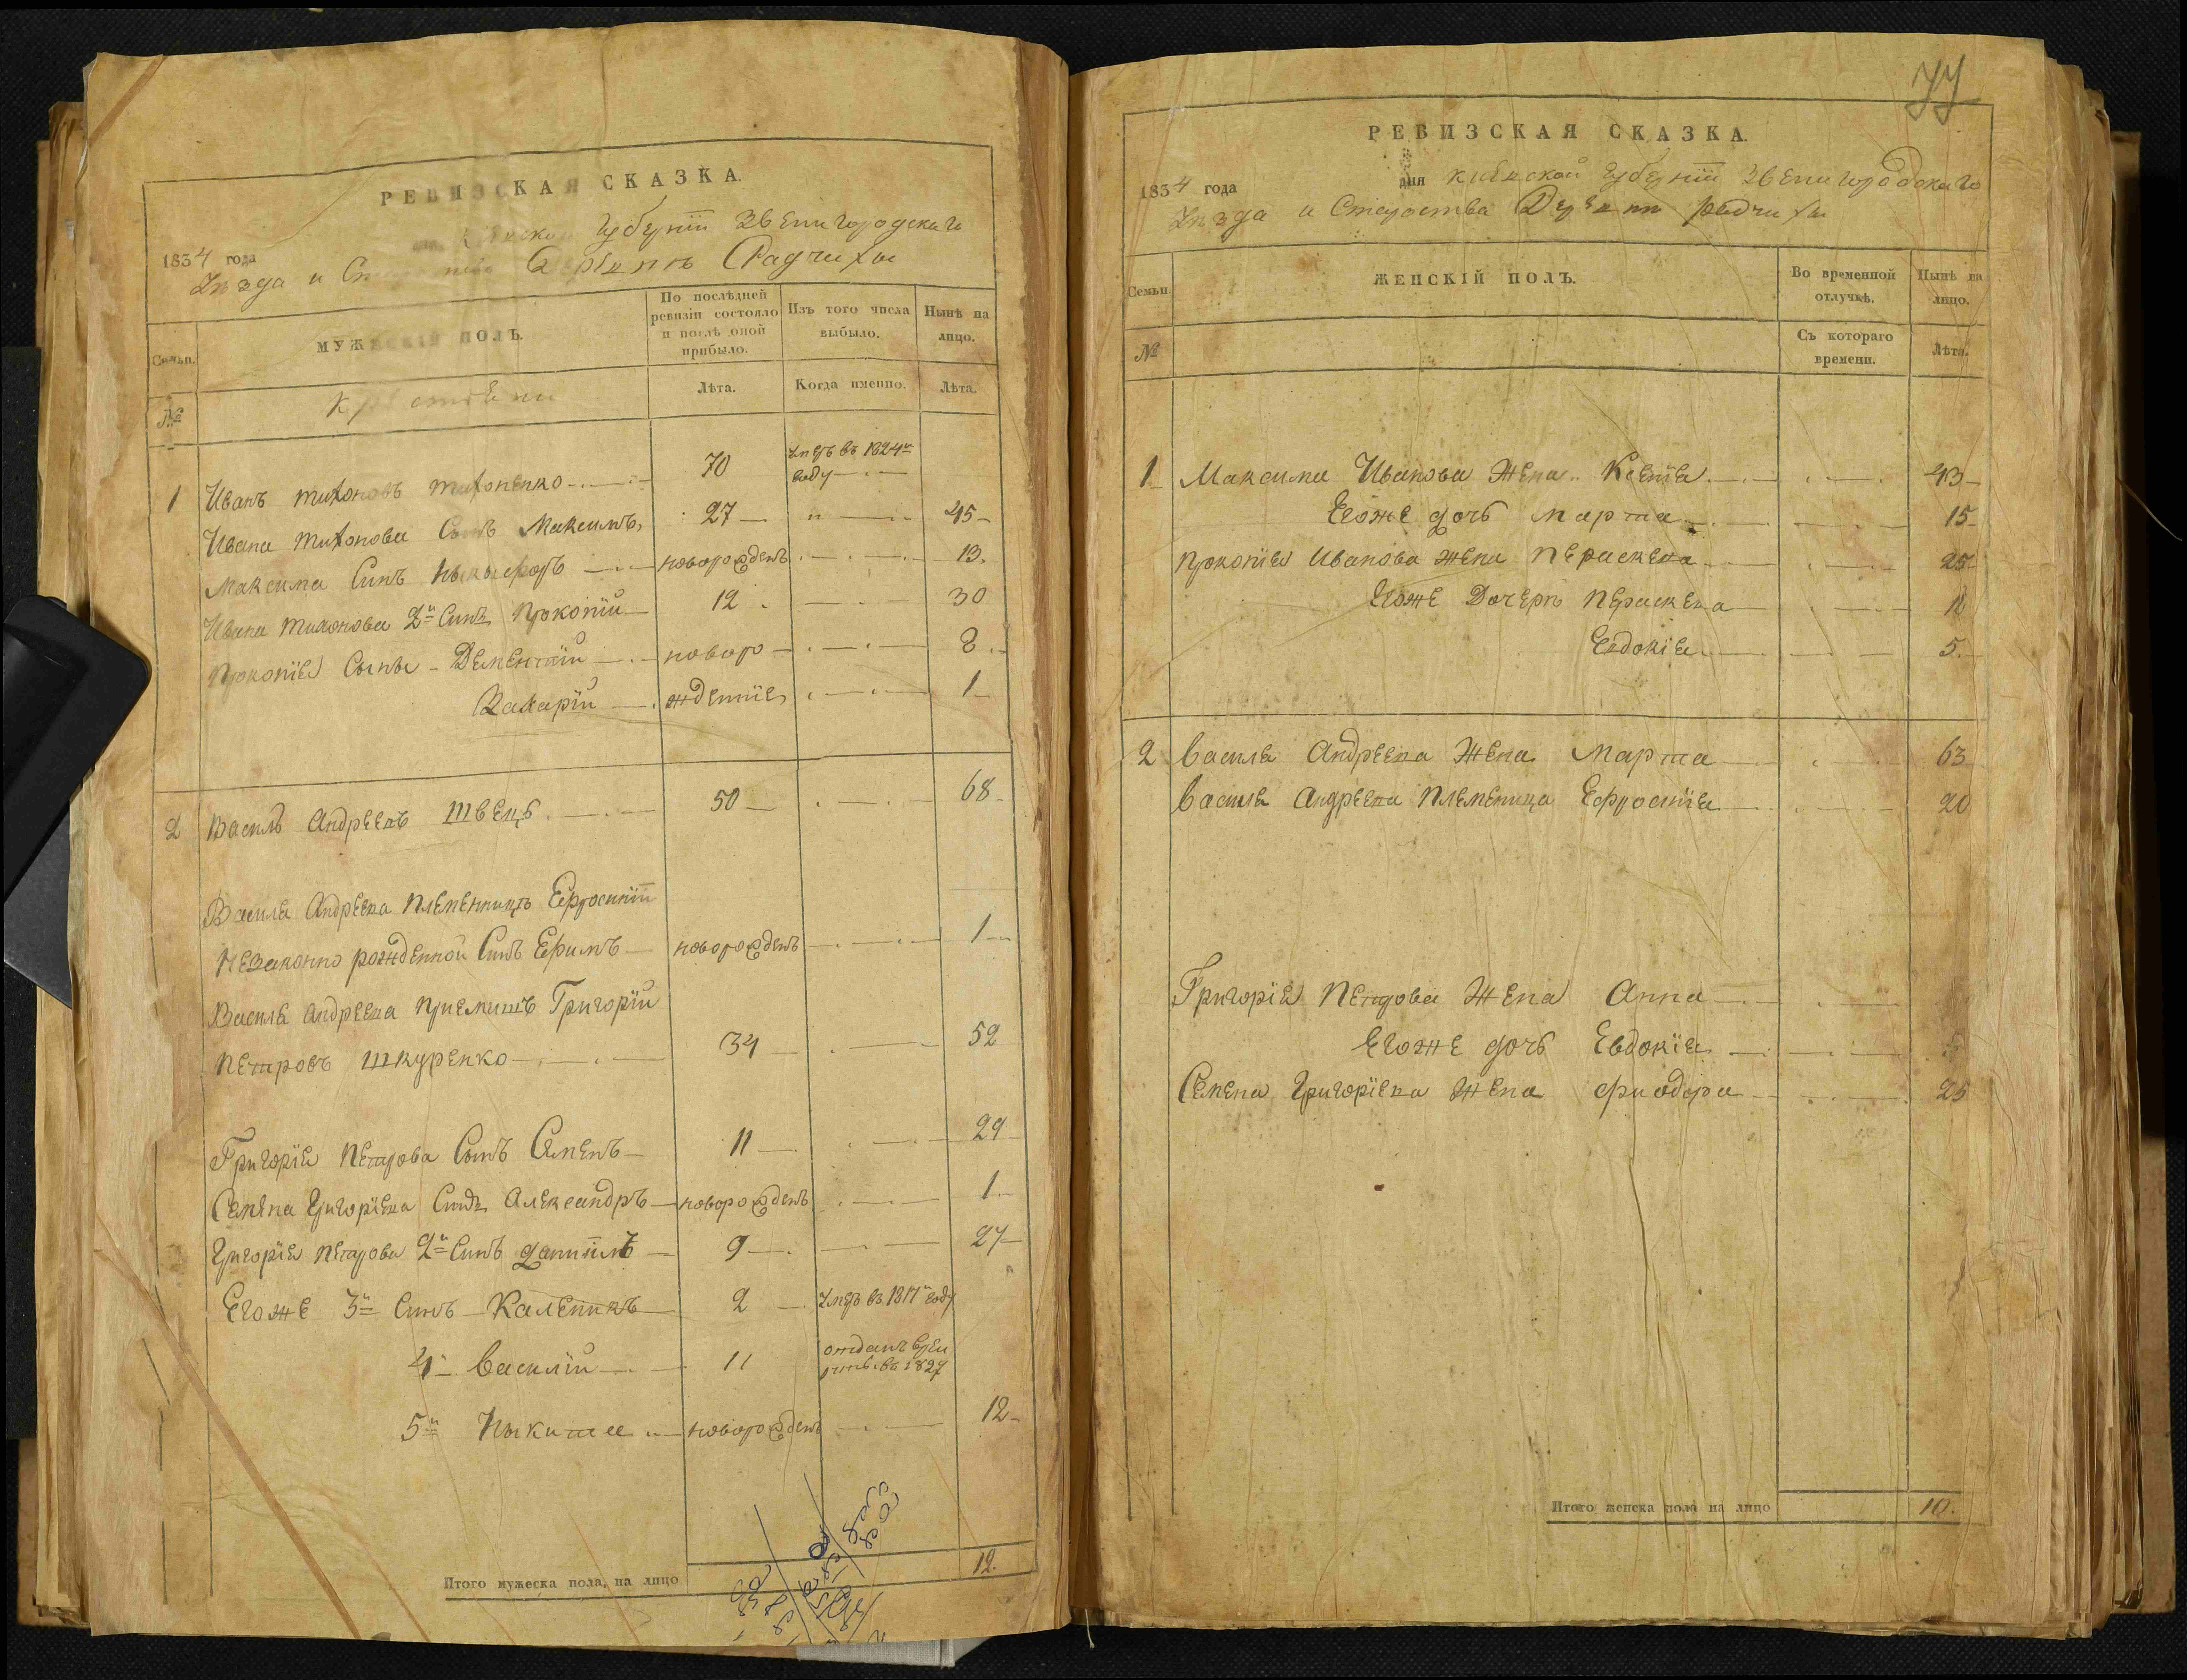 РЕВИЗСКАЯ СКАЗКА.
1834 года Кіевской Губерніи Звенигородскаго
Уѣзда и Радчихи
Семьи.
МУЖЕСКІЙ ПОЛЪ.
По послѣдней ревизіи состояло и послѣ оной прибыло.
Изъ того числа выбыло.
Нынѣ на лицо.
№
Крестьяни
Лѣта.
Когда именно.
Лѣта.
1 Иванъ Тихоновъ Тихоненко 70 умеръ въ 1824м году
Ивана Тихонова Сынъ Максимъ 27 45
Максима Синъ Ныкыфоръ новорожденъ 13.
Ивана Тихонова 2й Синъ Прокопій 12 30
Прокопіея Сыны Дементій новоро 8
Захарій жденніе 1
2 Василь Андреевъ Швець 50 68
Василя Андреева племенницъ Ефросиніи
незаконно рожденной Синъ Ефимъ новорожденъ 1
Василя Андреева приемишъ Григорій
Петровъ Шкуренко 34 52
Григорія Петрова Сынъ Семенъ 11 29
Семена Григоріева Синъ Александръ новорожденъ 1
Григорія Петрова 2й Синъ Даніилъ 9 27
Егоже 3й Синъ Каленикъ 2 умеръ въ 1817 году
4й Василій 11 отданъ въ 1827
5й Ныкита новорожденъ 12
Итого мужеска пола, на лицо 12.
77
РЕВИЗСКАЯ СКАЗКА.
1834 года дня Кіевской Губерніи Звенигородскаго
Уѣзда и Староства Деревни Радчихи
Семьи.
ЖЕНСКІЙ ПОЛЪ.
Во временной отлучкѣ.
Нынѣ на лицо.
№
Съ котораго времени.
Лѣта.
1 Максима Иванова Жена Ксенія 43
Егоже дочь Марта 15
Прокопія Иванова жена Пераскева 25
Егоже Дочеръ Пераскева
Евдокія 5.
2 Василя Андреева Жена Марта 63
Василя Андреева племеница Ефросинія 20
Григорія Петрова Жена Анна
Егоже дочь Евдокія
Семена Григоріева Жена Фиодора 25
Итого женска пола на лицо 10.